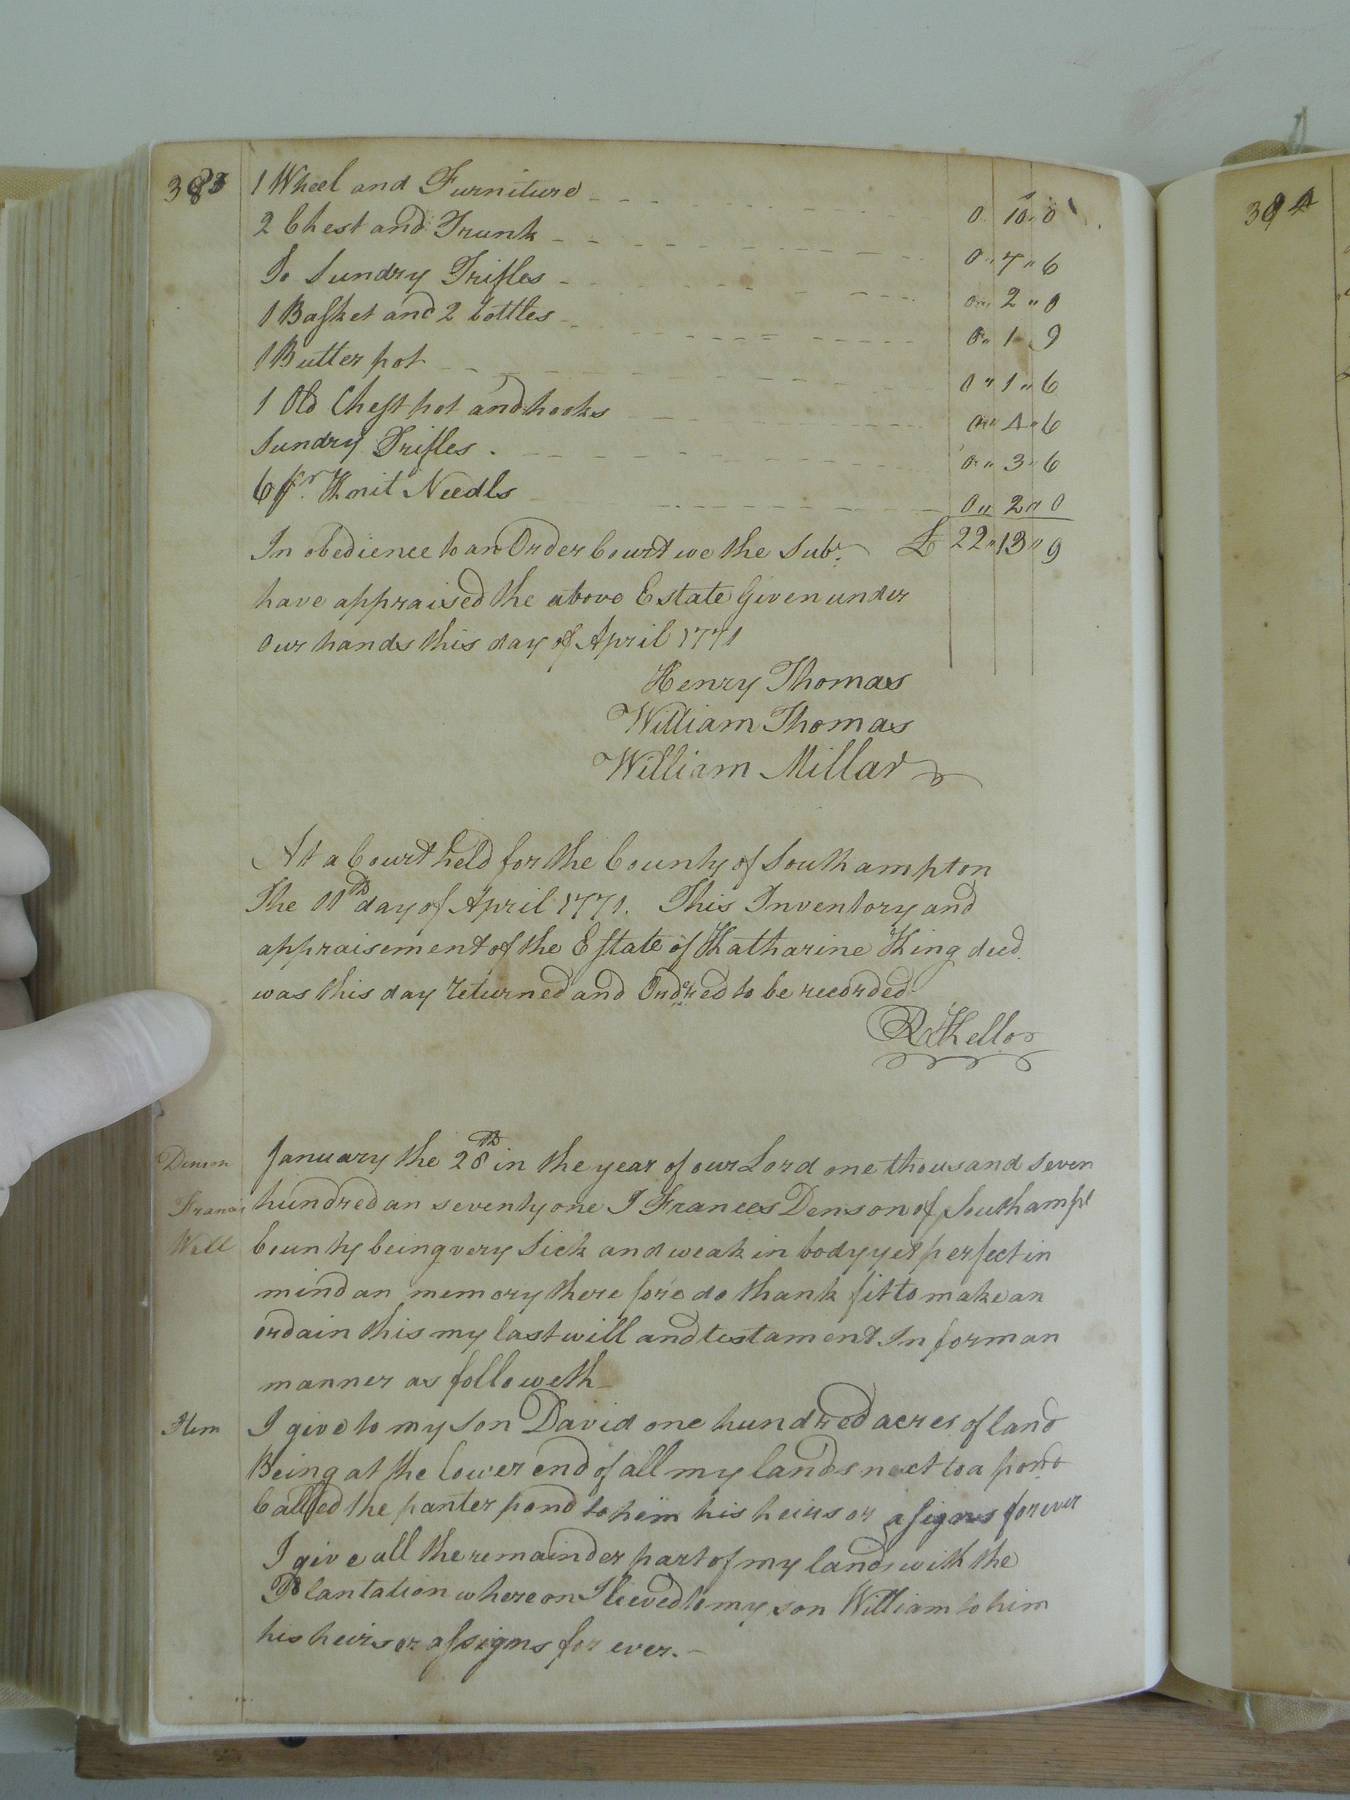 383
1 Wheel and Furniture 0 " 10 " 0
2 Chest and Trunk 0 " 7 " 6
To Sundry Trifles 0 " 2 " 0
1 Basket and 2 bottles 0 " 1 " 9
1 Butter pot 0 " 1 " 6
1 Old Chest pot and hooks 0 " 4 " 6
Sundry Trifles 0 " 3 " 6
6 pr. Knit Needls 0 " 2 " 0
In obedience to an Order Court we the Subr. £ 22 " 13 " 9
have appraised the above Estate Given under
Our hands this day of April 1771
Henry Thomas
William Thomas
William Millar
At a Court held for the County of Southampton
The 11th day of April 1771. This Inventory and
appraisement of the Estate of Katharine King decd.
was this day returned and Ordred to be recorded
R Kello
Denson Frances Will
January the 28th in the year of our Lord one thousand seven
hundred an seventy one I Frances Denson of Southampt
County being very Sick and weak in body yet perfect in
mind an memory there fore do thank fit to make an
ordain this my last will and testament In form an
manner as followeth
Item I give to my Son David one hundred acres of land
Being at the lower end of all my lands next to a pond
Called the panter pond to him his heirs or asigns forever
I give all the remainder part of my lands with the
Plantation whereon I lieved to my son William to him
his heirs or assigns for ever.
394